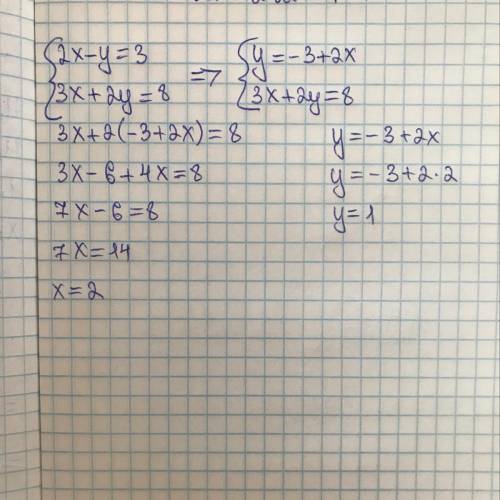 {2x-y=3 => {y=-3+2x
{3x+2y=8 {3x+2y=8
3x+2(-3+2x)=8
3x-6+4x=8
7x-6=8
7x=14
x=2
y=-3+2x
y=-3+2·2
y=1